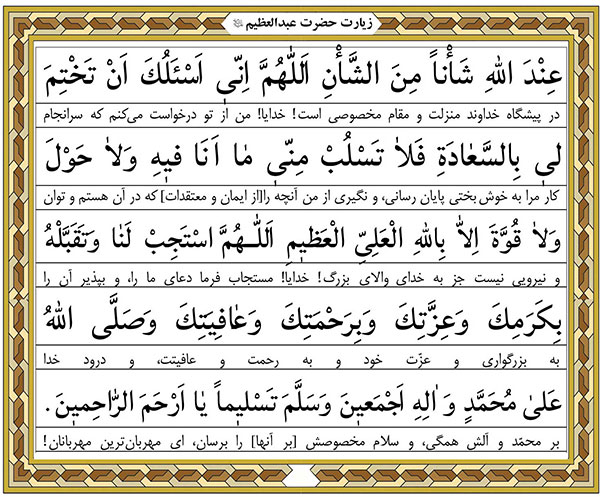 زیارت حضرت عبدالعظیم
عِنْدَ اللهِ شَأْناً مِنَ الشَّأْنِ اَللّٰهُمَّ اِنّٖى اَسْئَلُكَ اَنْ تَخْتِمَ
در پیشگاه خداوند منزلت و مقام مخصوصی است! خدایا! من از تو درخواست می‌کنم که سرانجام
لٖى بِالسَّعٰادَةِ فَلاٰ تَسْلُبْ مِنّٖى مٰا اَنَا فٖيهِ وَلاٰ حَوْلَ
کار مرا به خوش بختی پایان رسانی، و نگیری از من آنچه را[از ایمان و معتقدات] که در آن هستم و توان
وَلاٰ قُوَّةَ اِلاّٰ بِاللهِ الْعَلِىِّ الْعَظٖيمِ اَللّٰـهُمَّ اسْتَجِبْ لَنٰا وَتَقَبَّلْهُ
و نیرویی نیست جز به خدای والای بزرگ! خدایا! مستجاب فرما دعای ما را، و بپذیر آن را
بِكَرَمِكَ وَعِزَّتِكَ وَبِرَحْمَتِكَ وَعٰافِيَتِكَ وَصَلَّى اللهُ
به بزرگواری و عزّت خود و به رحمت و عافیتت، و درود خدا
عَلىٰ مُحَمَّدٍ وَ اٰلِهِ اَجْمَعٖينَ وَسَلَّمَ تَسْلٖيماً يٰا اَرْحَمَ الرّٰاحِمٖينَ.
بر محمّد و آلش همگی، و سلام مخصوصش [بر آنها] را برسان، ای مهربان‌ترین مهربانان!